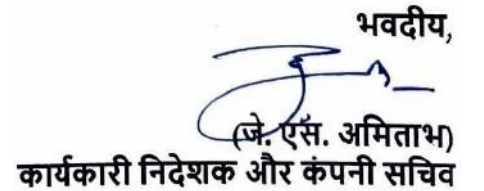 भवदीय,
(जे. एस. अमिताभ)
कार्यकारी निदेशक और कंपनी सचिव